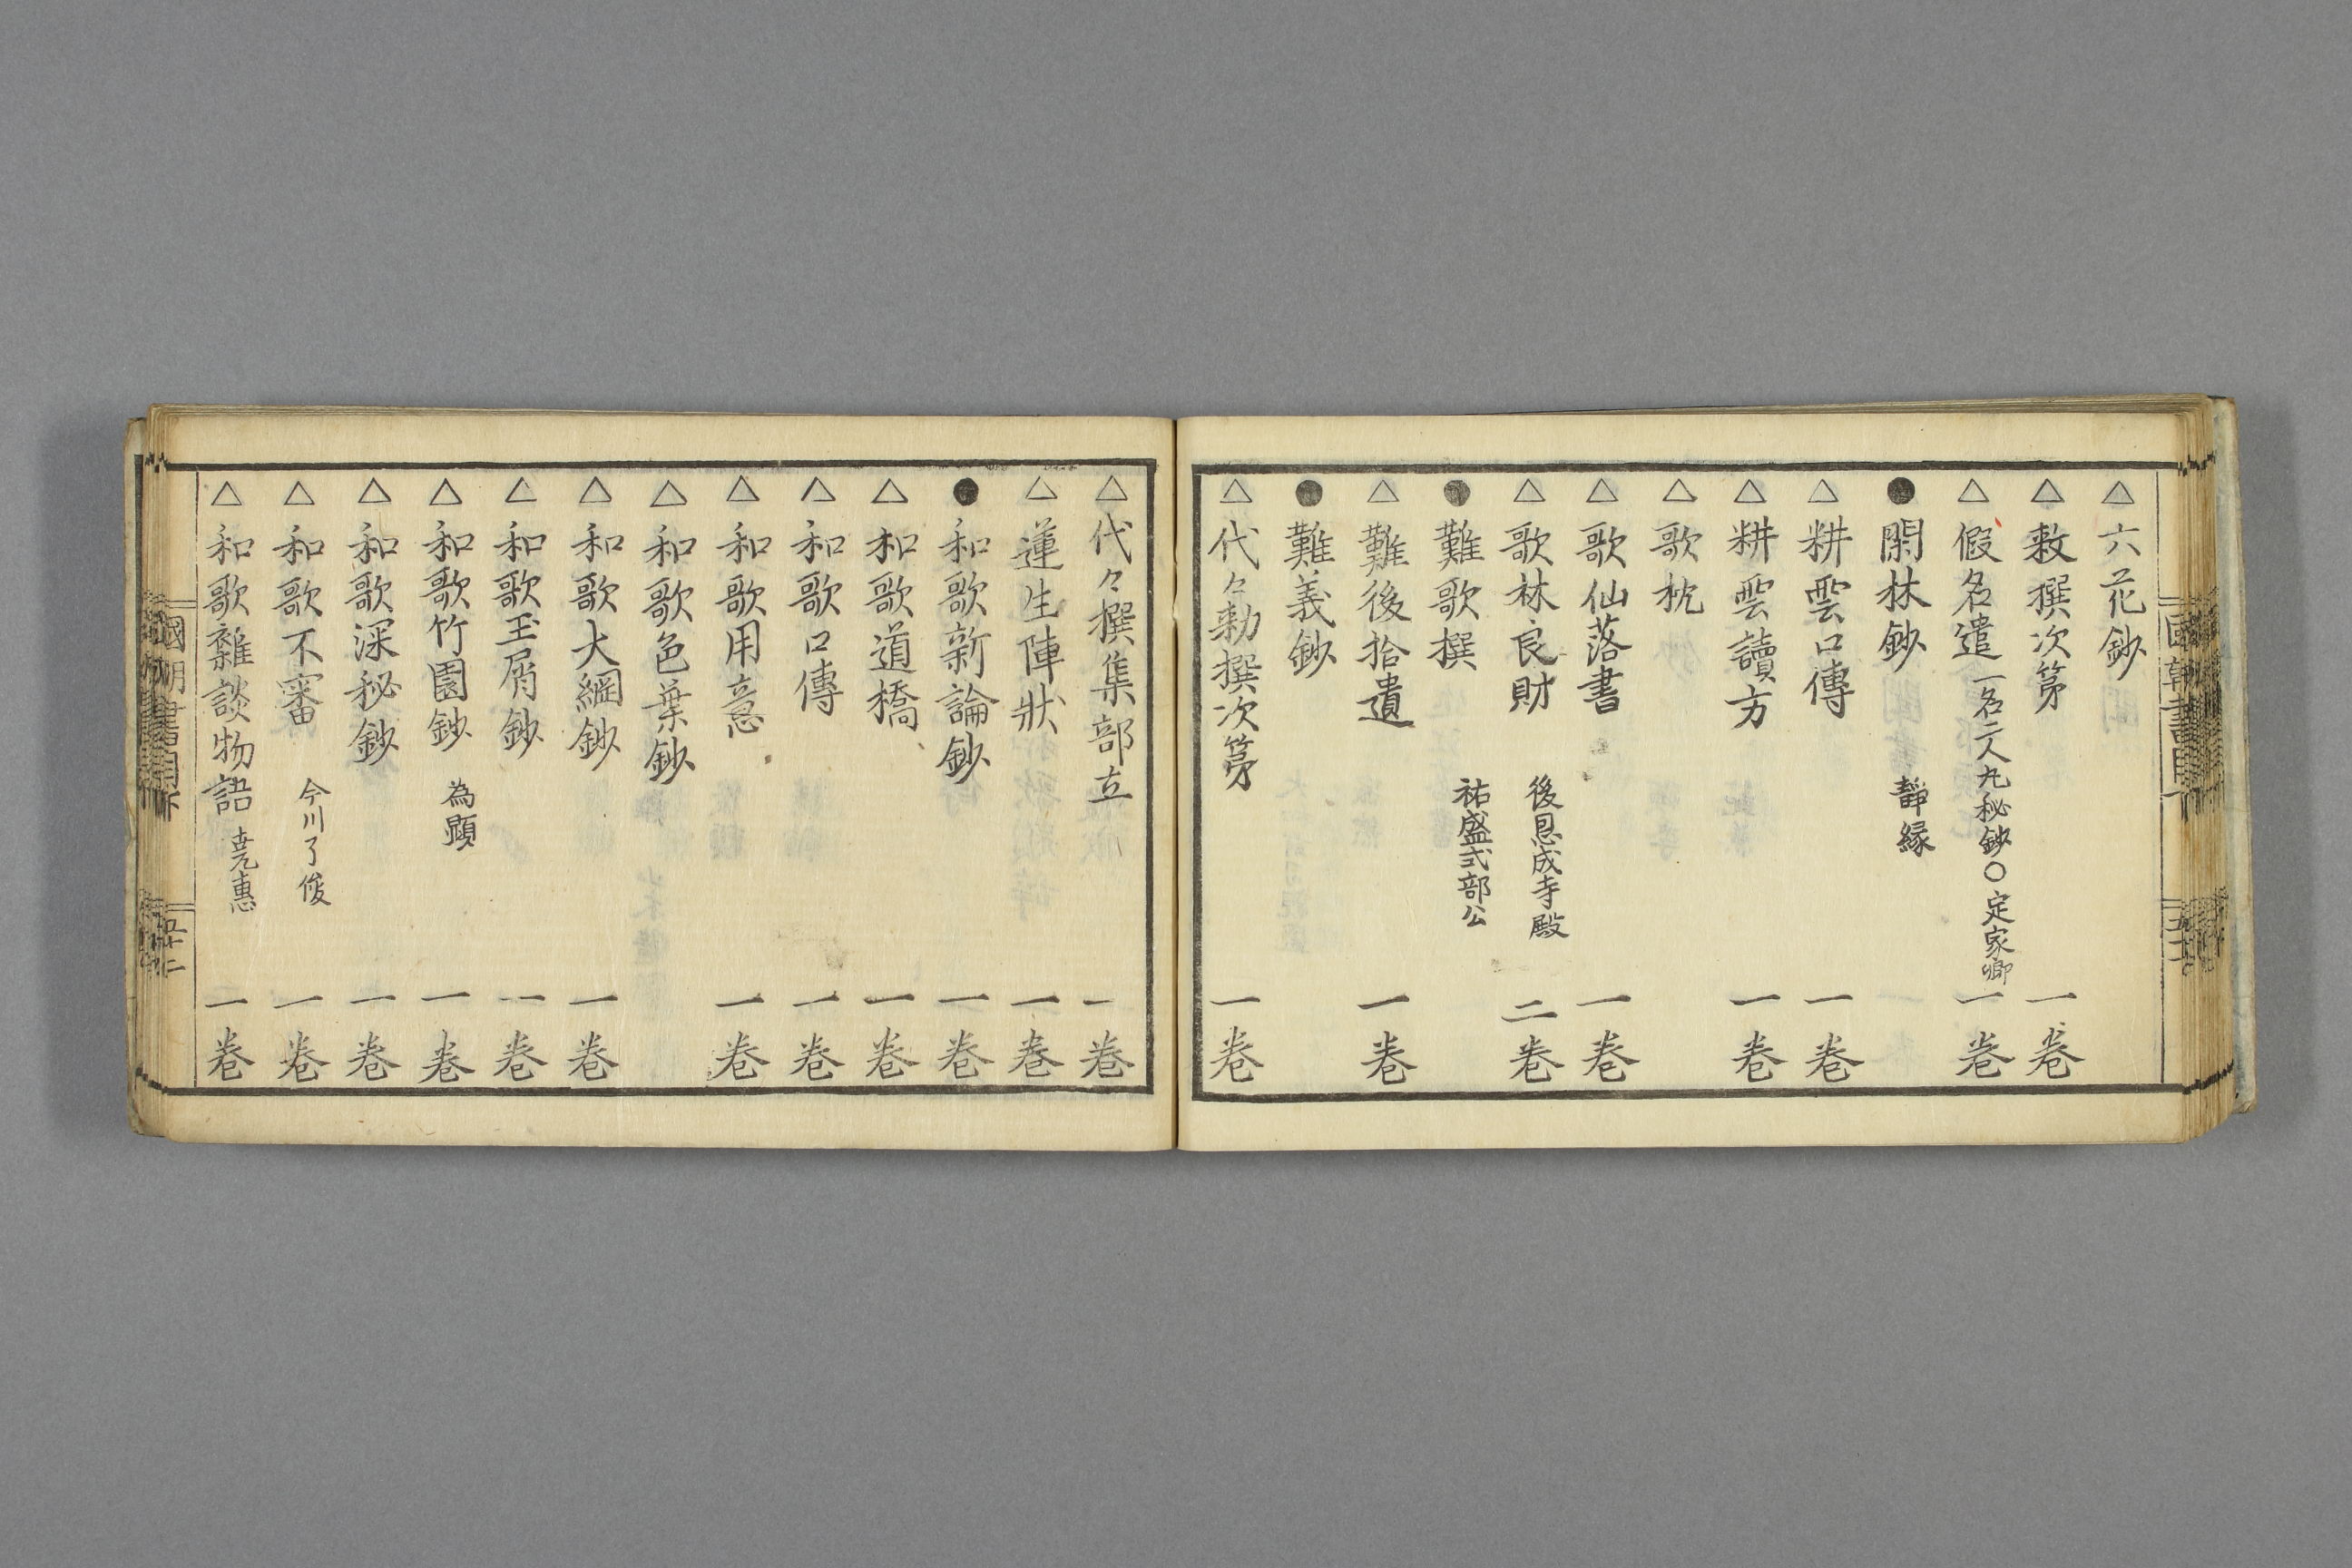 △六花鈔
△敕撰次第 一巻
△假名遣 一名二人丸秘鈔〇定家卿 一巻
●閑林鈔 靜縁
△耕雲口傳 一巻
△耕雲讀方 一巻
△歌枕
△歌仙落書 一巻
△歌林良財 後恩成寺殿 二巻
●難歌撰 祐盛式部公
△難後拾遺 一巻
●難義鈔
△代々勅撰次第 一巻
△代々撰集部立 一巻
△蓮生陣狀 一巻
●和歌新論鈔 一巻
△和歌道橋 一巻
△和歌口傳 一巻
△和歌用意 一巻
△和歌色葉鈔
△和歌大綱鈔 一巻
△和歌玉屑鈔 一巻
△和歌竹園鈔 為顕 一巻
△和歌深秘鈔 一巻
△和歌不審 今川了俊 一巻
△和歌雜談物語 堯惠 一巻